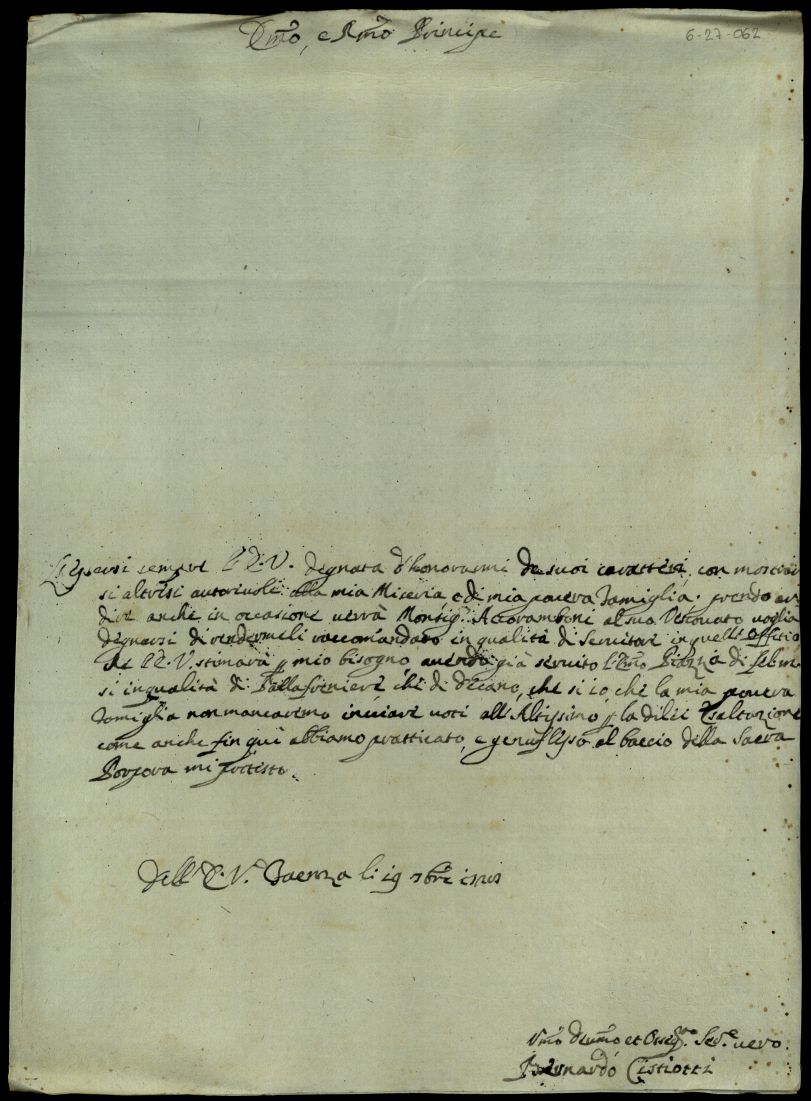 Emo, e Rmo Principe
6-27-062
sempre l'E.V. degnata d'honorarmi de suoi caratteri, con mostrar
si altresi autorevole alla mia Miseria e di mia povera famiglia. prendo ar
dire anche in occasione verrà Monsig.r Accoramboni al suo Vescovato voglia
degnarsi di rendermeli raccomandato in qualità di Servitore in quell'offitio
che l'E.V. stimarà p mio bisogno avendo già servito l'Emo Piazza di fel: m:
si in qualità di Pallafreniere che di Decano, che si io, che la mia povera
famiglia non mancaremo inviare voti all'Altissimo p la di lei Esaltazione
come anche fin qui abbiamo pratticato, e genuflesso al baccio della Sacra
Porpora mi protesto.
Dell'E.V. Faenza li 19 9bre
Vmo Devmo et Obligmo Serv.e vero
Bernardo Cistiotti